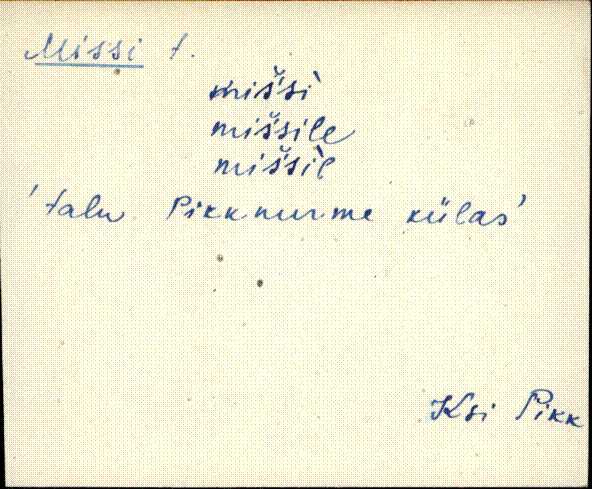 Missi t.
mišsì
mišsile
mišsìl
'talu Pikknurme külas'
Ksi Pikk